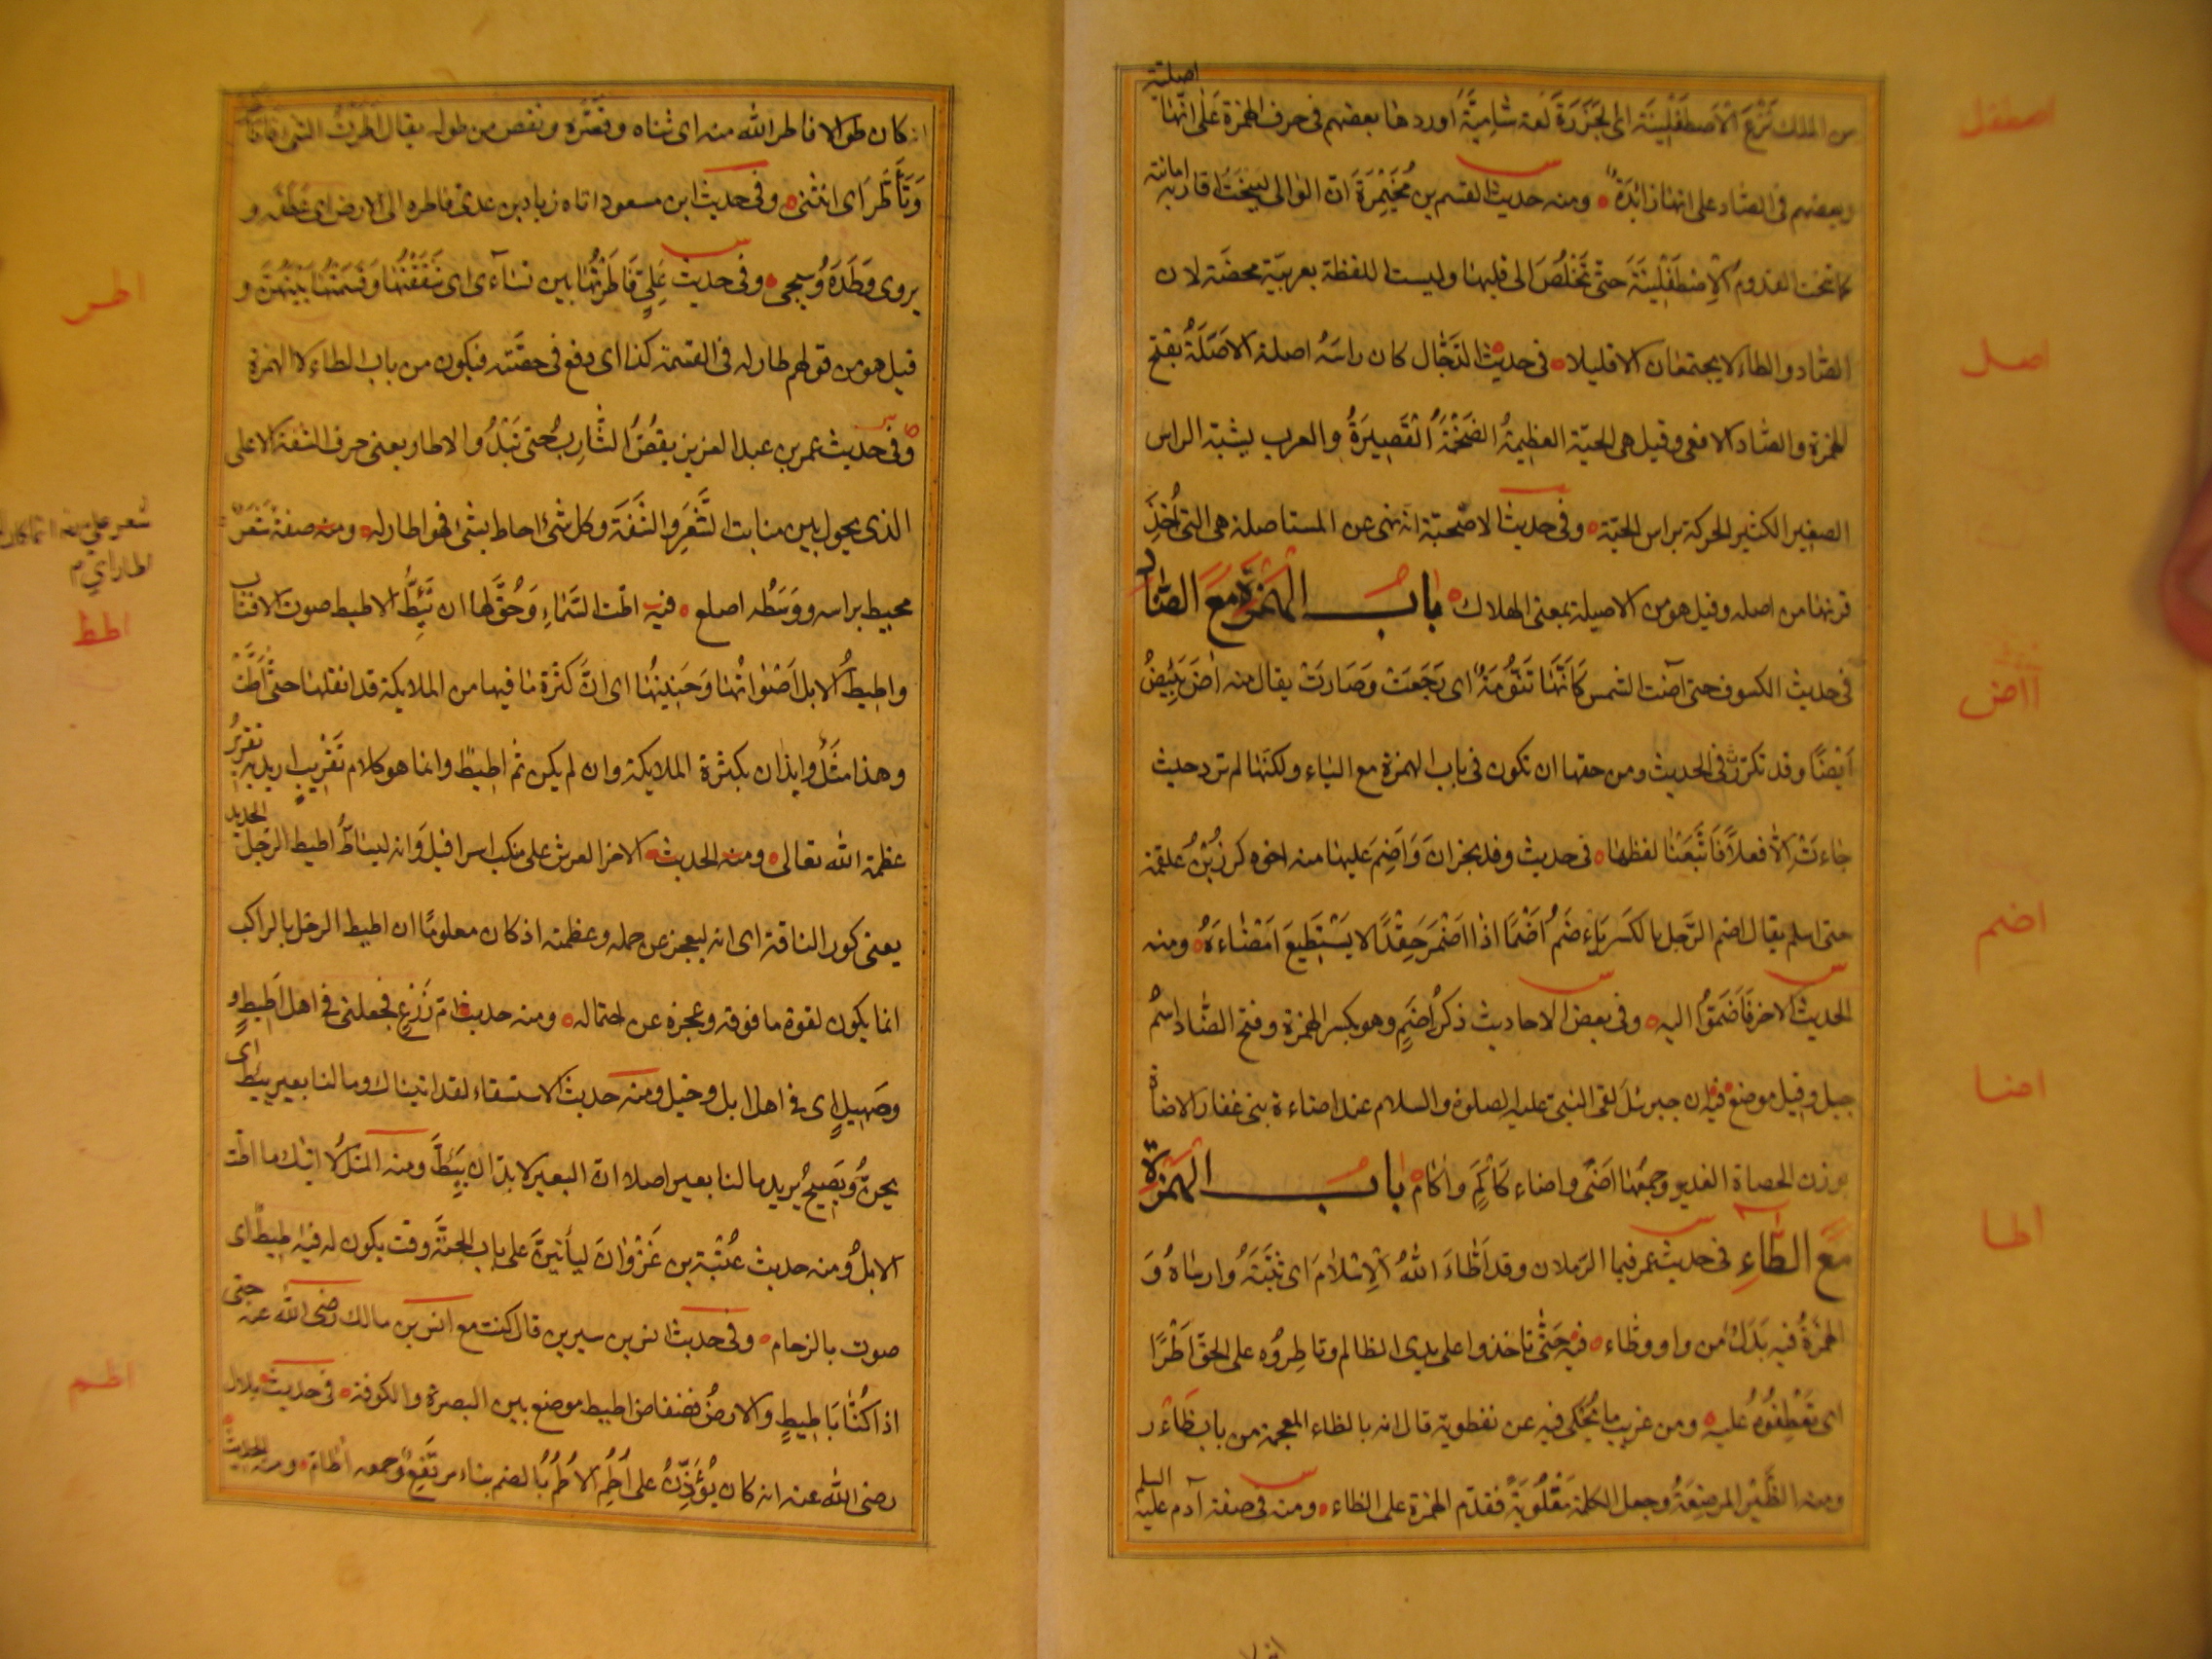 من الملك نَزْعَ الاصطَفْلِينَة اى الجَزَرَةَ لغة شامِيَّةً اوردها بعضهم فى حرف الهمزة عَلى انّها اصليّة
وبعضهم فى الصّاد على انها زائدَةٌ ومنه حديث القسم بن مُخَيْمِرَةَ انّ الوالى ليَنْحَتُ اقاربه امانته
كما تنحت القدوم الاِصْطَفْلِينَةَ حتّى تَخْلُصَ الى قلبها وليست اللفظة بعربيّة محضَة لان
الصّاد والطاء لا يجتمعان الا قليلا فى حديث الدّجّال كان راسَهُ اصلة الاَصَلَةُ بفتح
الهمزة والصّاد الافعى وقيل هى الحيّة العظيمةُ الضَخْمَةُ الْقَصِيرَةُ والعرب يشبّه الراس
الصغير الكثير الحركة براس الحيّة وفى حديث الاضحيّة انّه نهى عن المستاصلة هى التى اُخِذَ
قرنها من اصله وقيل هو من الاصيلة بمعنى الهلاك باب الهمزة مع الضّاد
فى حديث الكسوف حتى آضت الشمس كَاَنّها تَنُّومَةٌ اى رَجَعَتْ وَصَارَتْ يقال منه اضَ يَئِيضُ
اَيْضًا وقد تكررت فى الحديث ومن حقها ان تكون فى باب الهمزة مع الياء ولكنها لم ترد حيث
جاءت الاّ فعلاً فَاتَّبَعْنا لفظها فى حديث وفد نجران وَاَضِمَ عَليها منه اخوه كرز بْنُ علقمة
حتى اسلم يقال اضم الرّجل بالكَسر يَاْضَمُ اَضْمًا اذا اضْمَرَ حِقْدًا لا يَسْتَطِيعَ امْضَاءَهُ ومنه
الحديث الاخر فَاَضِمُوا اليه وفى بعض الاحاديث ذكرُ اضَمٍ وهو بكسر الهمزة وفتح الضّاد اسْمُ
جبل وقيل موضع فيه ان جبرئل لقى النبىّ عليه الصلوة والسلام عند اضاءة بنى غفار الاضاة
بوزن الحصاة الغدير وجمعُها اَضًى واضاء كَاَكَمٍ واِكام باب الهمزة
مع الطّاءِ فى حديث عمر فيما الرّملان وقد اَطّاءَ اللّٰهُ الاِسْلامَ اى ثبَّتَهُ وارساهُ وَ
الهمزةُ فيه بَدَلٌ من واو وطاء فيه حتّى تاخذوا على يدى الظالم وتاطِرُوه على الحقّ اَطْرًا
اى تَعْطِفُوهُ عليه ومن غريب ما يُحكى فيه عن نفطويه قال انه بالظاء المعجمة من باب ظَاَرَ
ومنه الظِّئْر المرضِعَةُ وجعل الكلمة مَقْلُوبَةً فقدّم الهمزة على الظاء ومنه فى صفة آدم عليه السلم
اصطفل
اصل
آاض
اضم
اضا
اطا
انه كان طوالا فاطر الله منه اى ثناه وقصّره ونقص من طوله يقال اطَرْتُ الشى
وَتَاَطَّرَ اى انثنى وفى حديث ابن مسعود اتاه زياد بن عدىّ فاطره الى الارض اى عَطَفه و
يروى وَطَدَهُ وسيجى وفى حديث عَلِىٍّ فَاَطَرْتُهَا بين نسآءى اى شَقَقْتُهَا وَقَسَمْتُهَا بَيْنَهُنَّ و
قيل هو من قولهم طار له فى القسمة كذا اى وقع فى حصّته فيكون من باب الطاء لا الهمزة
وفى حديث عمر بن عبد العزيز يقصُّ الشّارِبُ حتى يَبْدُوَ الاطار يعنى حرف الشفة الاعلى
الذى يحول بين منابت الشَّعَرِ والشَّفَة وكل شئ احاط بشئ فهو اطار له ومنه صفة شَعَرٌ
محيط براسه ووسَطُه اصلع فيه اطّت السّماءِ وَحُقَّ لها ان تَئِطَّ الاطيط صوت الاقتاب
واطِيطُ الابل اَصْوَاتُها وَحَنِينُها اى انّ كثرة ما فيها من الملايكة قد اثقلها حتّى اَطَّتْ
وهذا مَثَلٌ وايذان بكثرة الملايكة وان لم يكن ثم اطِيطٌ وانما هو كلام تَقْرِيبٍ اريد به تقريرُ
عظمة الله تعالى ومنه الحديث الاخر العرش على منكب اسرافيل وَانه ليَئِطُّ اطيط الرّحل الجديد
يعنى كور الناقة اى انه ليعجز عن حمله وعظمته اذ كان معلومًا ان اطيط الرحل بالراكب
انما يكون لقوة ما فوقه وعجزه عن احتماله ومنه حديث امّ زَرْعٍ فجعلنى فى اهل اَطِيطٍ و
وصَهِيلٍ اى فى اهل ابل وخيل ومنه حديث الاستسقاء لقد اتيناك وما لنا بعير يئِطُّ اى
يحنُّ وَيَصِيحُ يريد ما لنا بعير اصلا لانّ البعير لا بدّ ان يَئِطَّ ومنه المثل لا اتيك ما اطّت
الابلُ ومنه حديث عُتْبَة بن غَزْوانَ ليأتينّ على باب الجنّة وقت يكون له فيه اطِيطٌ اى
صوت بالزحام وفى حديث انس بن سيرين قال كنت مع انس بن مالك رضى الله عنه حتى
اذا كُنّا بَاطِيطٍ والارضُ فضفاض اطيط موضع بين البصرة والكوفة فى حديث بلال
رضى الله عنه انه كان يُؤَذِّنُ على اُطُمٍ الاُطُمُ بالضم بناء مرتَفِعٌ وجمعه اٰطام ومنه الحديث
اطر
شعر على
اطار اى
اطط
اطم